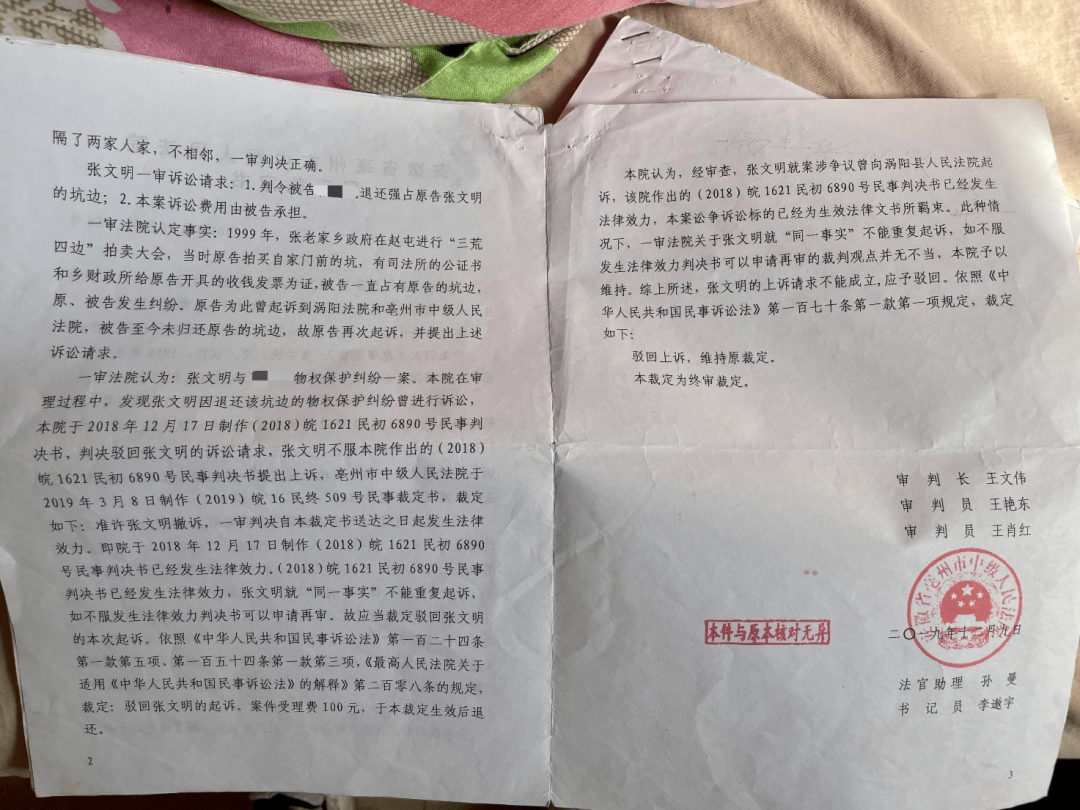 隔了两家人家，不相邻，一审判决正确。
张文明一审诉讼请求：1.判令被告 .退还强占原告张文明
的坑边；2.本案诉讼费用由被告承担。
一审法院认定事实：1999年，张老家乡政府在赵屯进行“三荒
四边”拍卖大会，当时原告拍买自家门前的坑，有司法所的公证书
和乡财政所给原告开具的收线发票为证，被告一直占有原告的坑边，
原、被告发生纠纷。原告为此曾起诉到涡阳法院和亳州市中级人民
法院，被告至今未归还原告的坑边，故原告再次起诉，并提出上述
诉讼请求。
一审法院认为：张文明与 物权保护纠纷一案。本院在审
理过程中，发现张文明因退还该坑边的物权保护纠纷曾进行诉讼，
本院于2018年12月17日制作(2018)皖1621民初6890号民事判
决书，判决驳回张文明的诉讼请求，张文明不服本院作出的(2018)
皖1621民初6890号民事判决书提出上诉，亳州市中级人民法院于
2019年3月8日制作(2019)皖16民终509号民事裁定书，裁定
如下：准许张文明撤诉，一审判决自本裁定书送达之日起发生法律
效力。即院于2018年12月17日制作(2018)皖1621民初6890
号民事判决书已经发生法律效力。(2018)皖1621民初6890号民事
判决书已经发生法律效力，张文明就“同一事实”不能重复起诉，
如不服发生法律效力判决书可以申请再审。故应当裁定驳回张文明
的本次起诉。依照《中华人民共和国民事诉讼法》第一百二十四条
第一款第五项、第一百五十四条第一款第三项，《最高人民法院关于
适用《中华人民共和国民事诉讼法》的解释》第二百零八条的规定，
裁定：驳回张文明的起诉。案件受理费100元，于本裁定生效后退
还。
2
本院认为，经审查，张文明就案涉争议曾向涡阳县人民法院起
诉，该院作出的(2018)皖1621民初6890号民事判决书已经发生
法律效力，本案讼争诉讼标的已经为生效法律文书所羁束。此种情
况下，一审法院关于张文明就“同一事实”不能重复起诉，如不服
发生法律效力判决书可以申请再审的裁判观点并无不当，本院予以
维持。综上所述，张文明的上诉请求不能成立，应予驳回。依照《中
华人民共和国民事诉讼法》第一百七十条第一款第一项规定，裁定
如下：
驳回上诉，维持原裁定。
本裁定为终审裁定。
审 判 长 王文伟
审 判 员 王艳东
审 判 员 王肖红
安徽省亳州市中级人民法院
二〇一九年十二月九日
本件与原本核对无异
法官助理 孙 曼
书 记 员 李邀宇
3